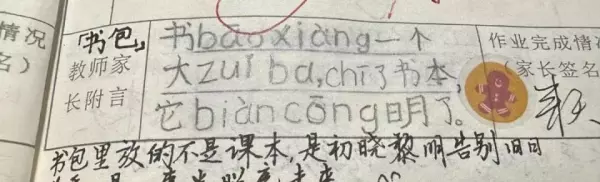 情况
名）
「书包」
教师家
长附言
书bāo xiàng一个
大zuǐ ba,chī了书本,
它biàn cōng明了。
作业完成情
（家长签名
书包里放的不是课本,是初晓黎明告别旧日